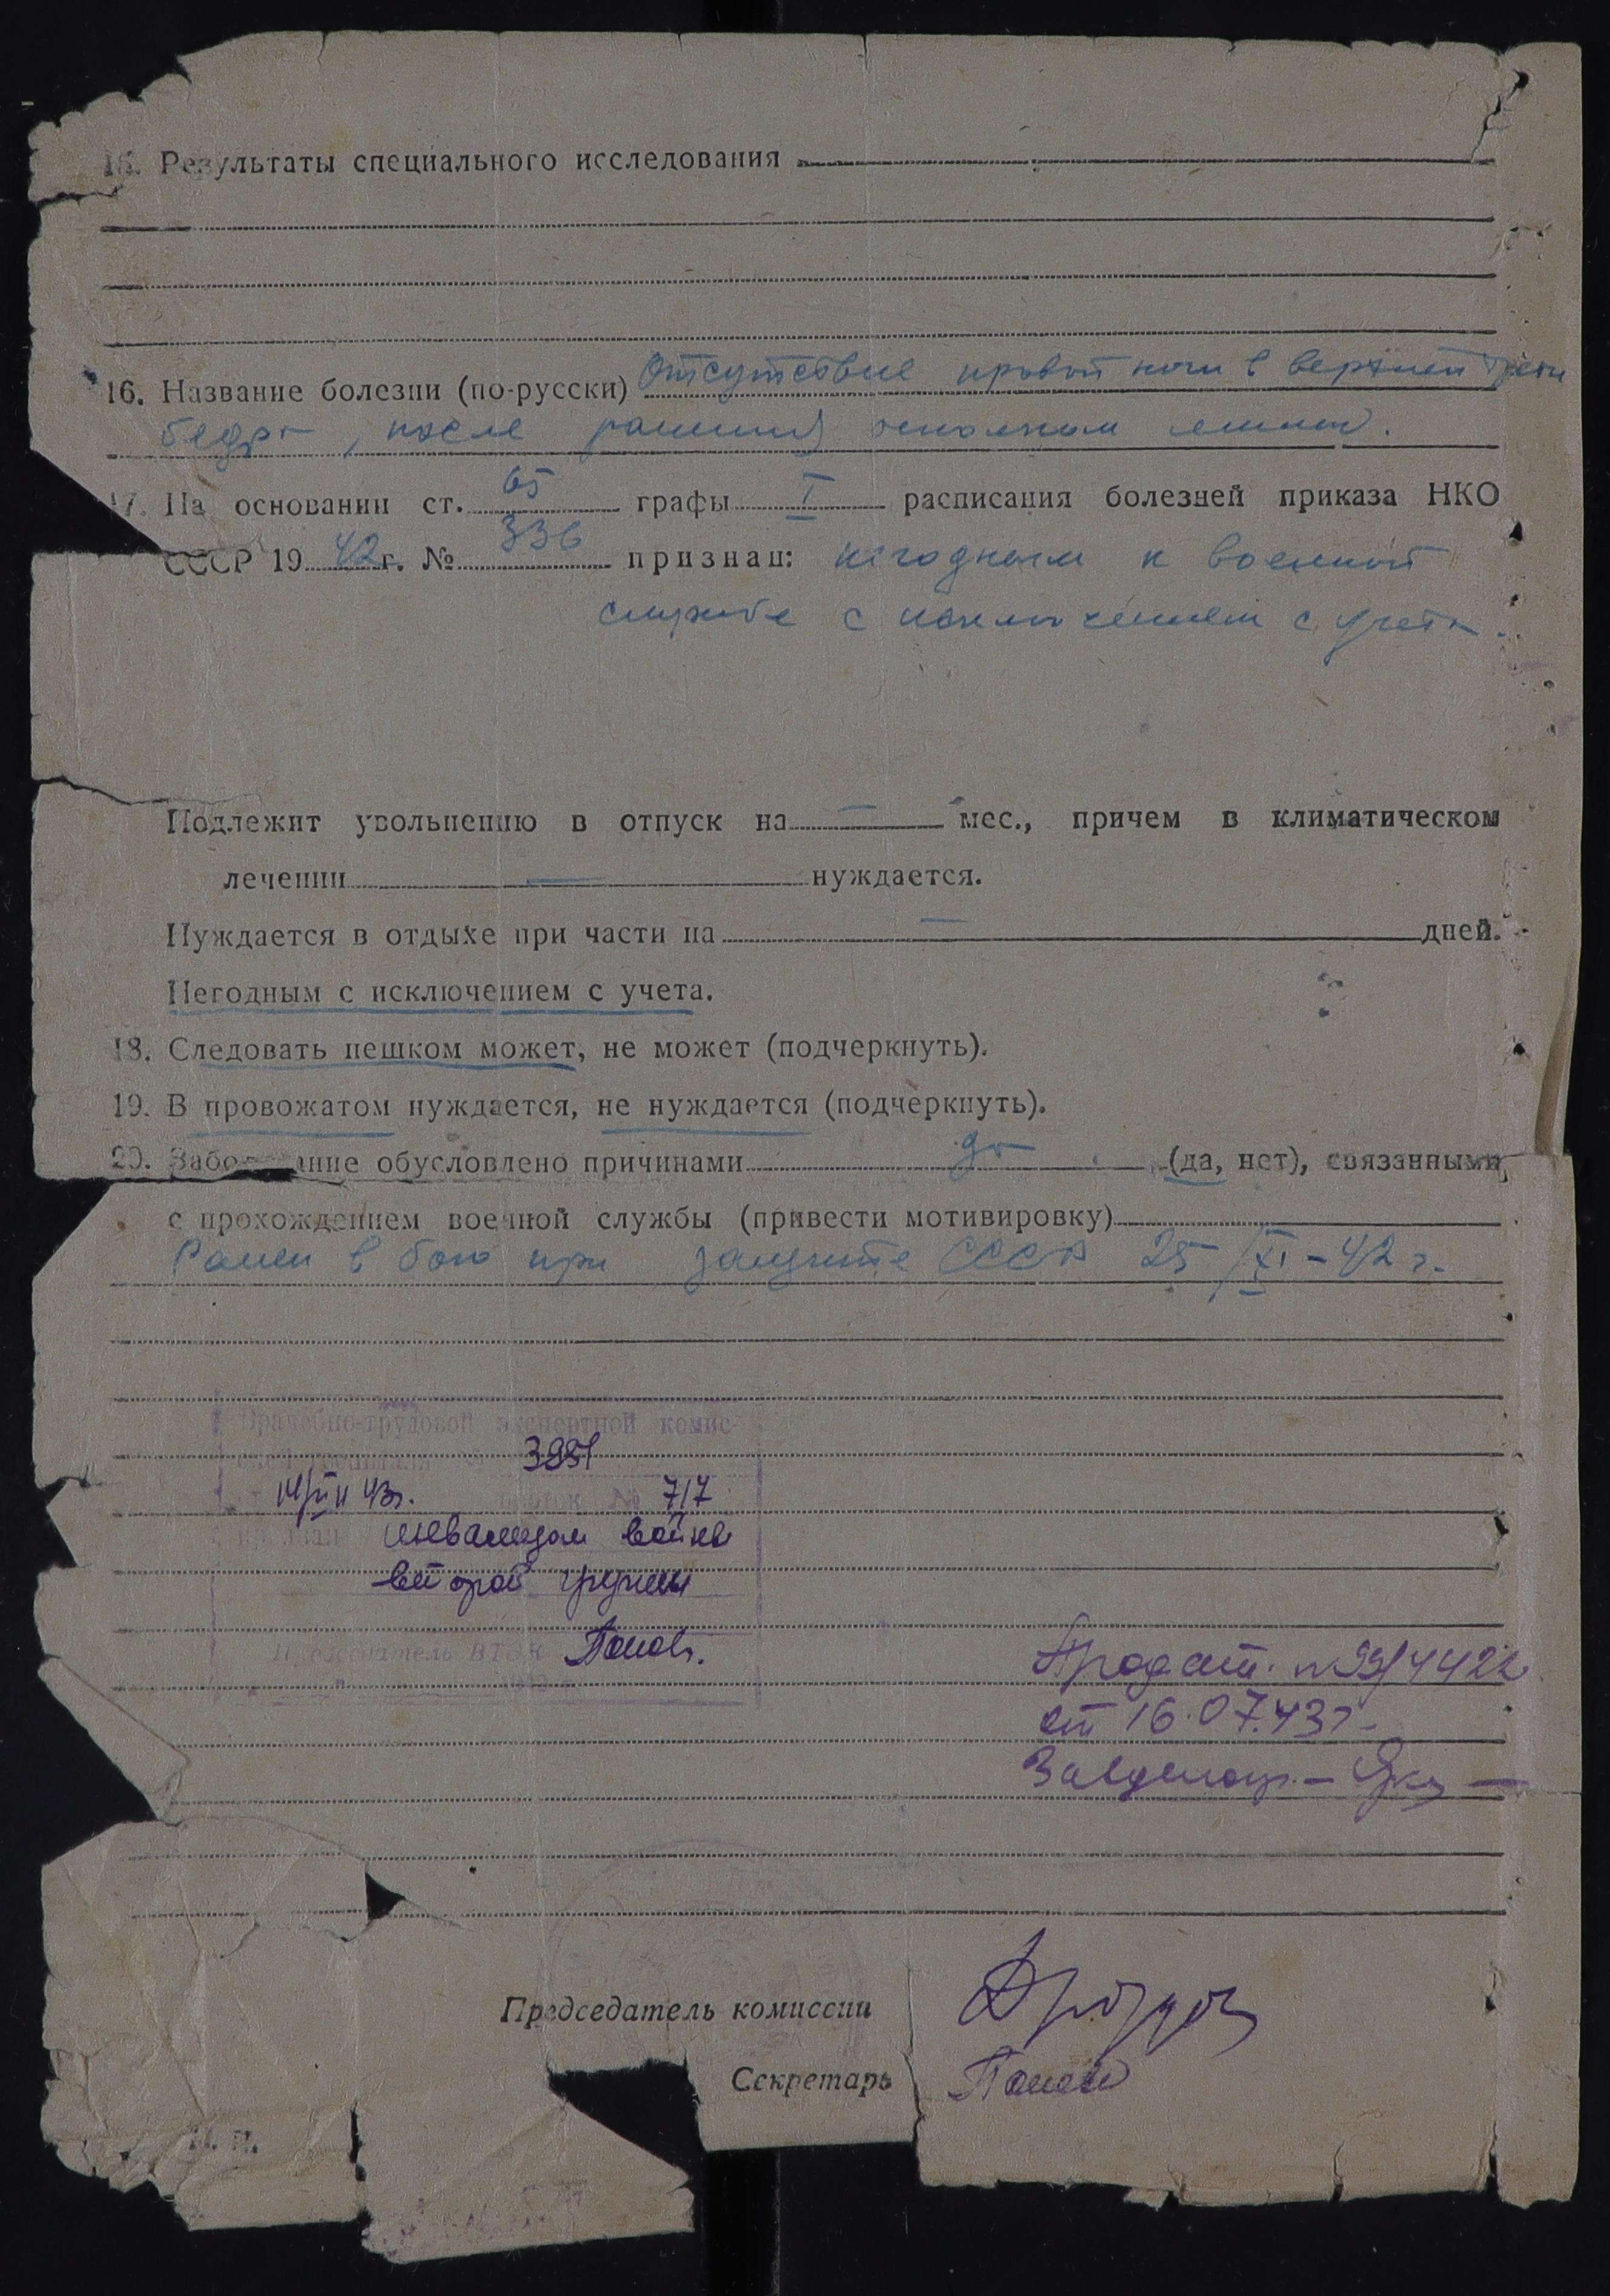 15. Результаты специального исследования
16. Название болезни (по-русски) Отсутствие правой ноги в верхней трети
бедра, после ранения осколком мины.
17. На основании ст. 65 графы I расписания болезней приказа НКО
СССР 1942 г. № 336 признан: негодным к военной
службе с исключением с учета.
Подлежит увольнению в отпуск на — мес., причем в климатическом
лечении — нуждается.
Нуждается в отдыхе при части на — дней.
Негодным с исключением с учета.
18. Следовать пешком может, не может (подчеркнуть).
19. В провожатом нуждается, не нуждается (подчеркнуть).
20. Заболевание обусловлено причинами да (да, нет), связанными
с прохождением военной службы (привести мотивировку)
Ранен в бою при защите СССР 25/XI-42 г.
Врачебно-трудовой экспертной комис-
3951
43г. № 717
признан инвалидом войны
второй группы
Председатель ВТЭК
от 16.07.43г.
Председатель комиссии
Секретарь
М. П.